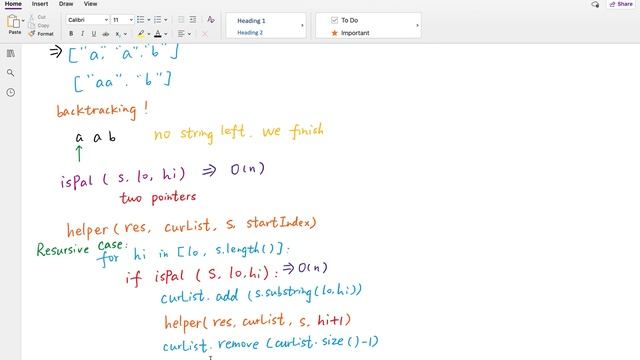 Home Insert Draw View
Share
Paste
Cut
Copy
Format
Calibri 11
B I U ab
Heading 1
Heading 2
To Do
Important
⇒ ["a". "a". "b"]
["aa". "b"]
backtracking !
a a b no string left. we finish
isPal ( s, lo, hi) ⇒ O(n)
two pointers
helper ( res, curList, s, startIndex)
Resursive case:
for hi in [lo, s.length()]:
if isPal ( S, lo, hi) : ⇒ O(n)
curList. add (s.substring(lo, hi))
helper( res, curlist, s, hi+1)
curlist. remove (curlist. size ()-1)